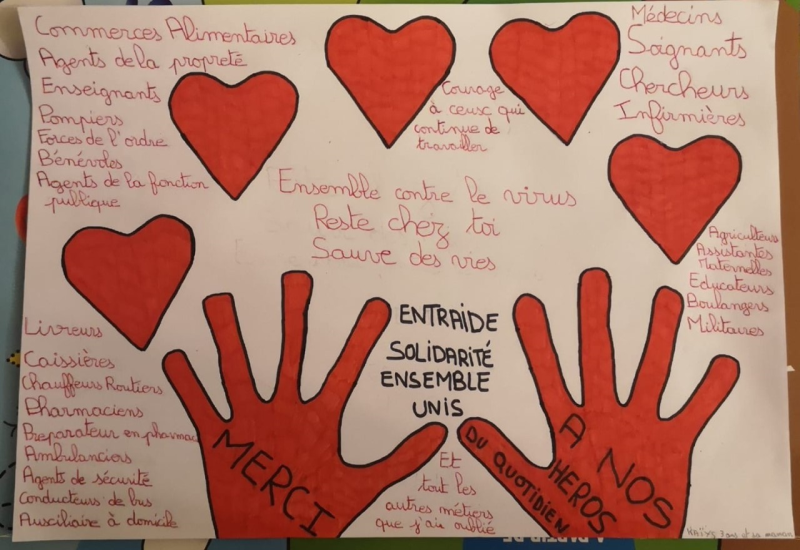 Commerces Alimentaires
Agents de la propreté
Enseignants
Pompiers
Forces de l'ordre
Bénévoles
Agents de la fonction
publique
Courage
à ceusc qui
continue de
travailler
Médecins
Soignants
Chercheurs
Infirmières
Ensemble contre le virus
Reste chez toi
Sauve des vies
Agriculteurs
Assistantes
Maternelles
Educateurs
Boulangers
Militaires
Livreurs
Caissières
Chauffeurs Routiers
Pharmaciens
Préparateur en pharmac
Ambulanciers
Agents de sécurité
Conducteurs de bus
Auxiliaire à domicile
ENTRAIDE
SOLIDARITÉ
ENSEMBLE
UNIS
MERCI
A NOS
HEROS
DU QUOTIDIEN
Et
tout les
autres métiers
que j'ais oublié
3 ans et sa maman
A PARTIR DE